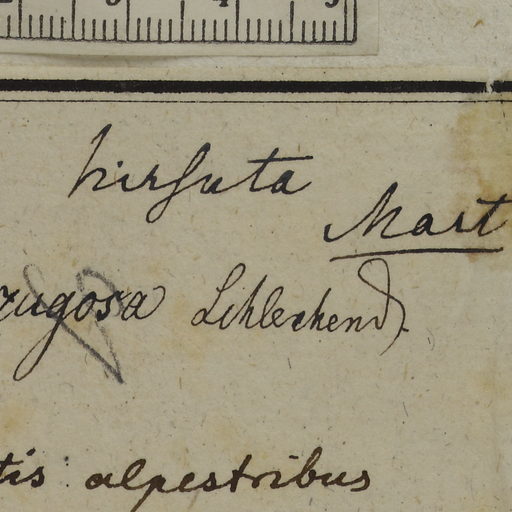 3 4 5
hirsuta
Mart
rugosa Schlechend.
tis alpestribus